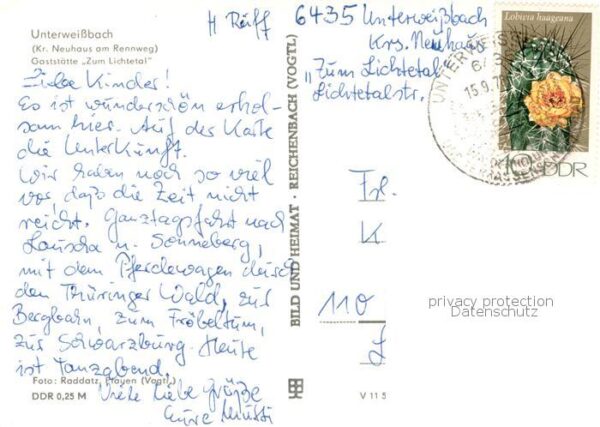 H Räff
6435 Unterweißbach
Krs. Neuhaus
"Zum Lichtetal"
Lichtetalstr.
Unterweißbach
(Kr. Neuhaus am Rennweg)
Gaststätte „Zum Lichtetal"
Liebe Kinder!
Es ist wunderschön erhol-
sam hier. Auf der Karte
die Unterkunft.
Wir haben noch so viel
vor, daß die Zeit nicht
reicht. Ganztagsfahrt nach
Lauscha u. Sonneberg,
mit dem Pferdewagen durch
den Thüringer Wald, zur
Bergbahn, zum Fröbelturm,
zur Schwarzburg. Heute
ist Tanzabend.
Viele liebe Grüße
Eure Mutti
Foto: Raddatz, Plauen (Vogtl.)
DDR 0,25 M
BILD UND HEIMAT · REICHENBACH (VOGTL)
V 11 5
Frl.
K
110
L
privacy protection
Datenschutz
Lobivia haageana
10 DDR
UNTERWEISSBACH
15.9.7